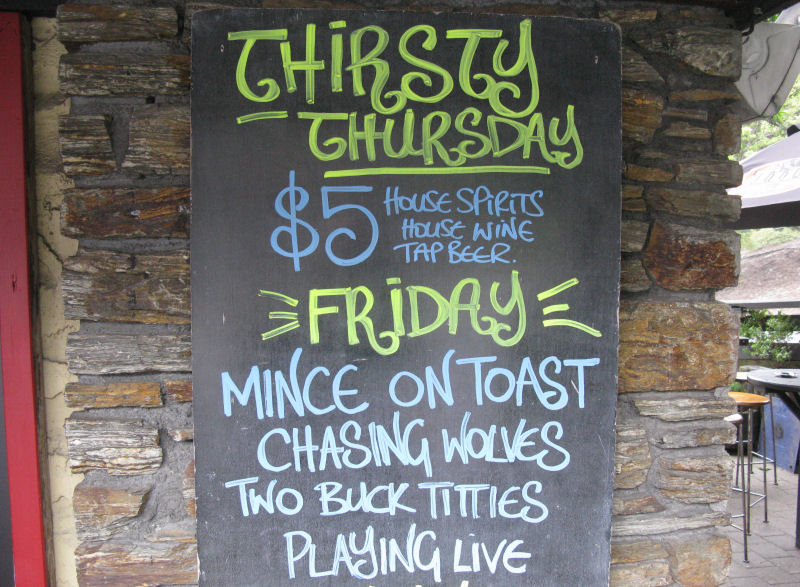 THIRSTY
THURSDAY
$5 HOUSE SPIRITS
HOUSE WINE
TAP BEER.
FRIDAY
MINCE ON TOAST
CHASING WOLVES
TWO BUCK TITTIES
PLAYING LIVE